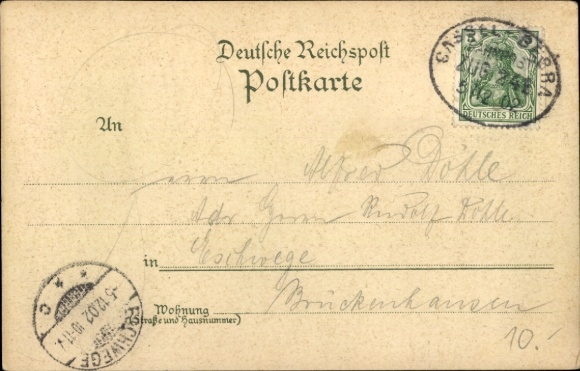 Deutsche Reichspost
Postkarte
CASSEL-BEBRA
ZUG
5 12 02
DEUTSCHES REICH
An
Herrn Alfred Döhle
Adr Herrn Rudolf Döhle
in Eschwege
Brückenhausen
Wohnung
(Straße und Hausnummer)
ESCHWEGE
5.12.02
C
10.